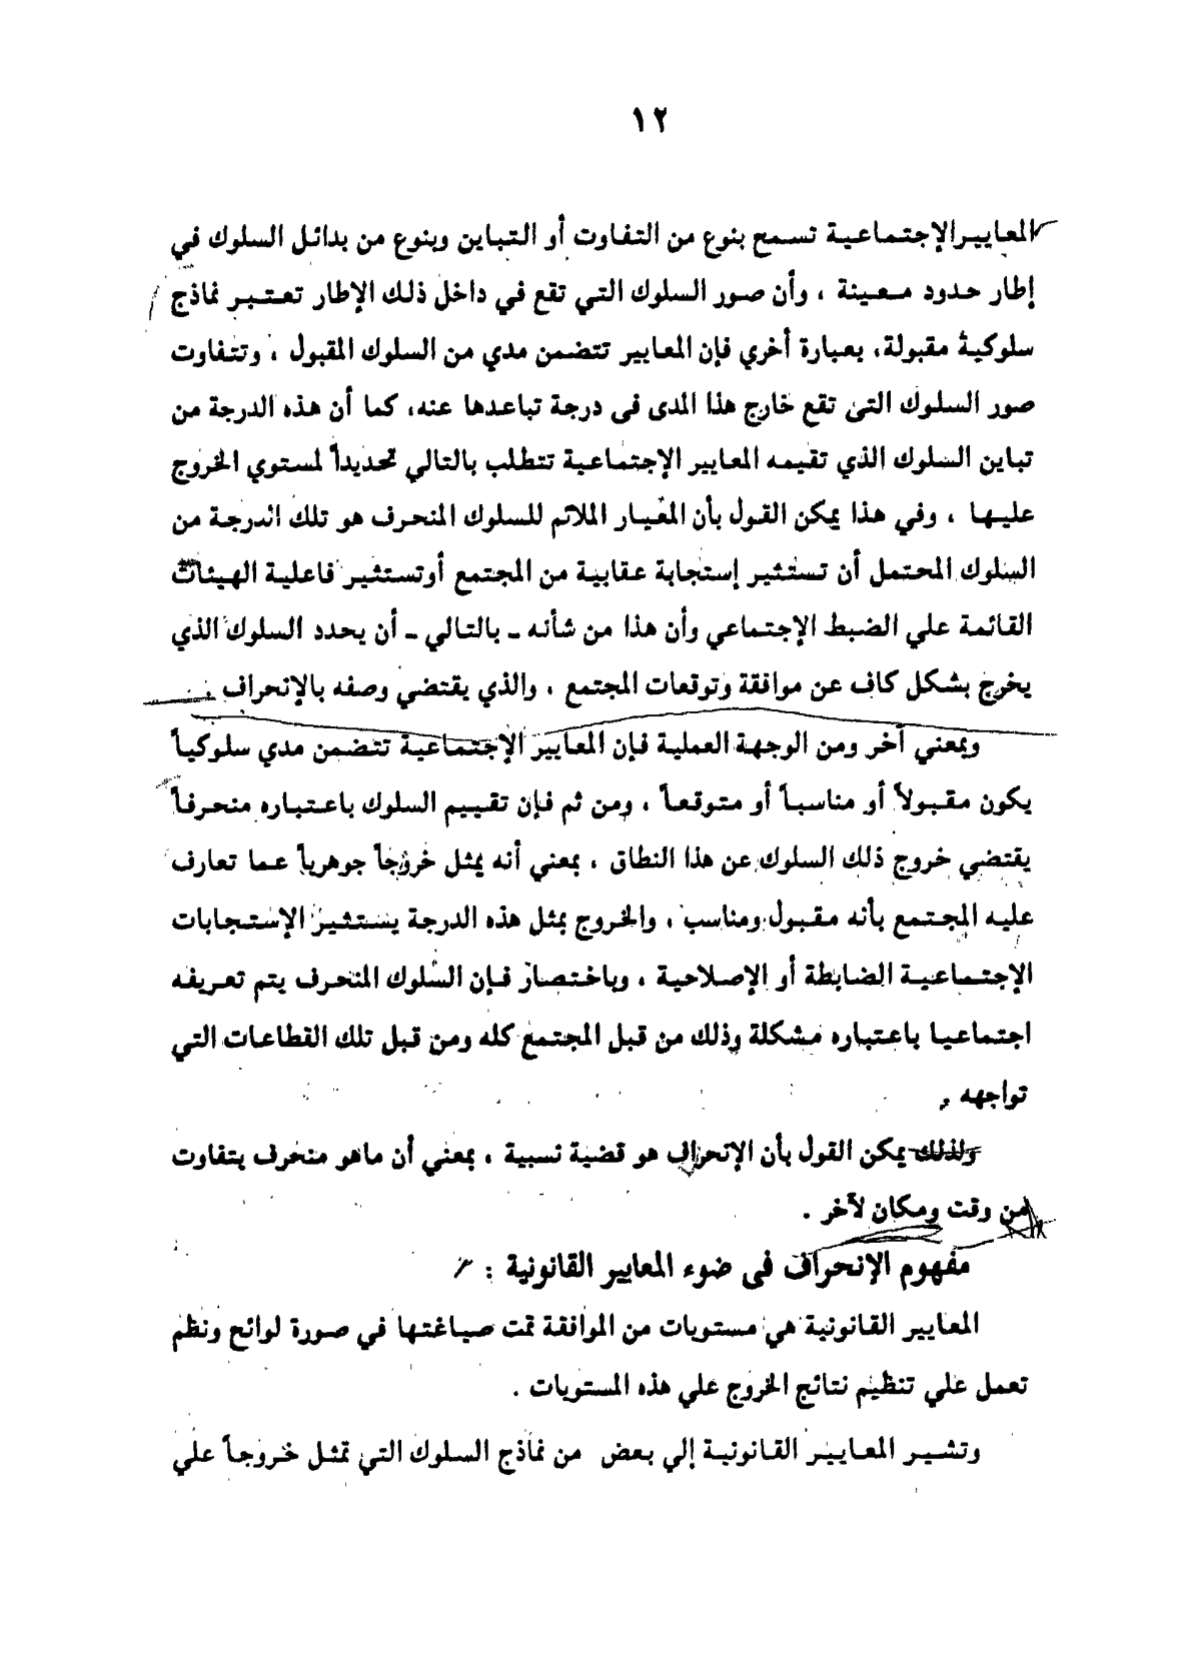 ١٢
المعايير الإجتماعية تسمح بنوع من التفاوت أو التباين وبنوع من بدائل السلوك في
إطار حدود معينة ، وأن صور السلوك التي تقع في داخل ذلك الإطار تعتبر نماذج
سلوكية مقبولة، بعبارة أخري فإن المعايير تتضمن مدي من السلوك المقبول ، وتتفاوت
صور السلوك التى تقع خارج هذا المدى فى درجة تباعدها عنه، كما أن هذه الدرجة من
تباين السلوك الذي تقيمه المعايير الإجتماعية تتطلب بالتالي تحديداً لمستوي الخروج
عليها ، وفي هذا يمكن القول بأن المعيار الملائم للسلوك المنحرف هو تلك الدرجة من
السلوك المحتمل أن تستثير إستجابة عقابية من المجتمع أوتستثير فاعلية الهيئات
القائمة علي الضبط الإجتماعي وأن هذا من شأنه ـ بالتالي ـ أن يحدد السلوك الذي
يخرج بشكل كاف عن موافقة وتوقعات المجتمع ، والذي يقتضي وصفه بالإنحراف .
وبمعني آخر ومن الوجهة العملية فإن المعايير الإجتماعية تتضمن مدي سلوكياً
يكون مقبولاً أو مناسباً أو متوقعاً ، ومن ثم فإن تقييم السلوك باعتباره منحرفاً
يقتضي خروج ذلك السلوك عن هذا النطاق ، بمعني أنه يمثل خروجاً جوهرياً عما تعارف
عليه المجتمع بأنه مقبول ومناسب ، والخروج بمثل هذه الدرجة يستثير الإستجابات
الإجتماعية الضابطة أو الإصلاحية ، وباختصار فإن السلوك المنحرف يتم تعريفه
اجتماعيا باعتباره مشكلة وذلك من قبل المجتمع كله ومن قبل تلك القطاعات التي
تواجهه .
ولذلك يمكن القول بأن الإنحراف هو قضية نسبية ، بمعني أن ماهو منحرف يتفاوت
من وقت ومكان لآخر .
مفهوم الإنحراف فى ضوء المعايير القانونية :
المعايير القانونية هي مستويات من الموافقة تمت صياغتها في صورة لوائح ونظم
تعمل علي تنظيم نتائج الخروج علي هذه المستويات .
وتشير المعايير القانونية إلي بعض من نماذج السلوك التي تمثل خروجاً علي